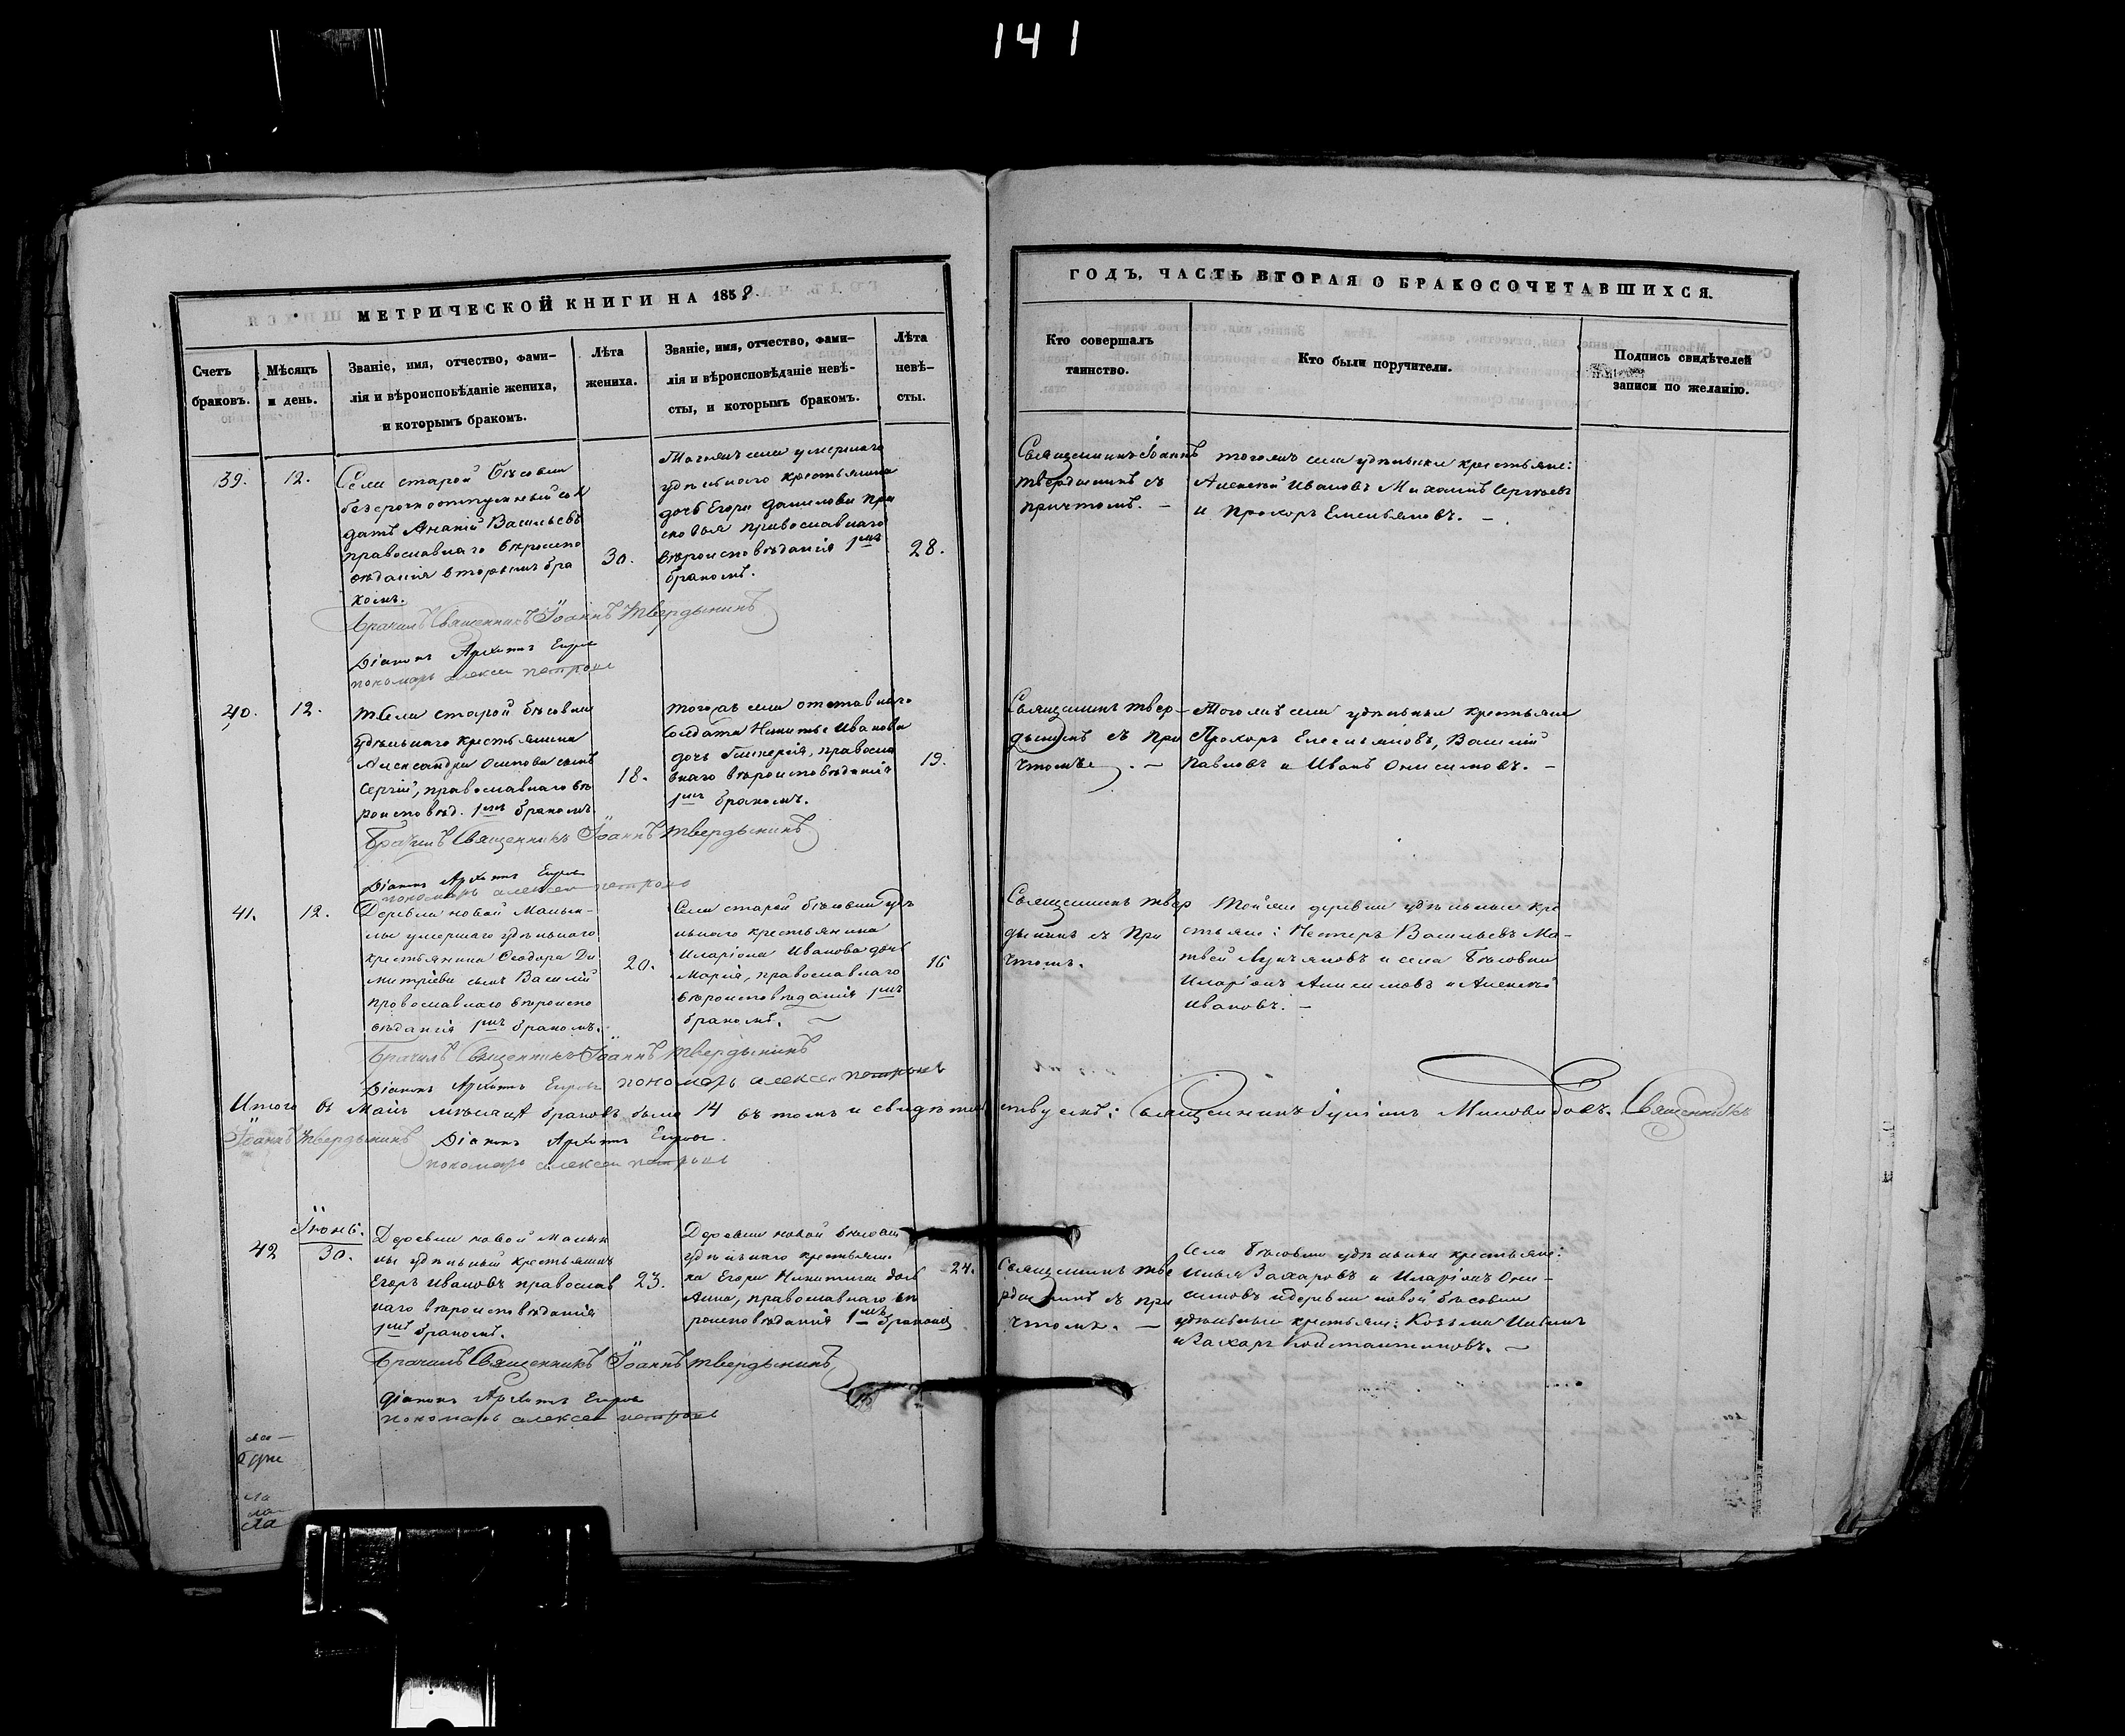 141
МЕТРИЧЕСКОЙ КНИГИ НА 1858.
Счетъ браковъ.
Мѣсяцъ и день.
Званіе, имя, отчество, фами-
лія и вѣроисповѣданіе жениха,
и которымъ бракомъ.
Лѣта жениха.
Званіе, имя, отчество, фами-
лія и вѣроисповѣданіе невѣ-
сты, и которымъ бракомъ.
Лѣта невѣ-
сты.
ГОДЪ, ЧАСТЬ ВТОРАЯ О БРАКОСОЧЕТАВШИХСЯ.
Кто совершалъ
таинство.
Кто были поручители.
Подпись свидѣтелей
записи по желанію.
39.
12.
Села старой Бѣсовки
безсрочноотпускный сол
датъ Ананій Васильевъ
православнаго вѣроиспо
вѣданія вторымъ бра
комъ.
30.
Тогожъ села умершаго
удѣльнаго крестьянина
дочь Егора Данилова
православнаго
вѣроисповѣданія 1мъ
бракомъ.
28.
Священникъ Іоаннъ
Твердынинъ съ
причтомъ. —
тогожъ села удѣльные крестьяне:
Алексѣй Ивановъ Михаилъ Сергѣевъ
и Прохоръ Емельяновъ. —
Брачилъ Священникъ Іоаннъ Твердынинъ
Діаконъ Архипъ
пономарь алексей петровъ
40.
12.
Села старой бѣсовки
удѣльнаго крестьянина
Александра Осипова сынъ
Сергій, православнаго вѣ
роисповѣд. 1мъ бракомъ
18.
тогожъ села отставнаго
солдата Никиты Иванова
дочь Гликерія, правосла
внаго вѣроисповѣданія
1мъ бракомъ.
19.
Священникъ Твер-
дынинъ съ при
чтомъ. —
Тогожъ села удѣльные крестьяне
Прохоръ Емельяновъ, Василій
Павловъ и Иванъ Онисимовъ. —
Брачилъ Священникъ Іоаннъ Твердынинъ
Діаконъ Архипъ
пономарь алексей петровъ
41.
12.
Деревни новой Малык-
лы умершаго удѣльнаго
крестьянина Ѳеодора Ди
митріева сынъ Василій
православнаго вѣроиспо
вѣданія 1мъ бракомъ.
20.
Села старой бѣсовки удѣ
льнаго крестьянина
Иларіона Иванова дочь
Марія, православнаго
вѣроисповѣданія 1мъ
бракомъ. —
16
Священникъ Твер
дынинъ съ при
чтомъ.
Тойже деревни удѣльные кре
стьяне: Нестеръ Васильевъ Ма-
твей Лукьяновъ и села Бѣсовки
Иларіонъ Анисимовъ и Алексѣй
Ивановъ. —
Брачилъ Священникъ Іоаннъ Твердынинъ
Діаконъ Архипъ пономарь алексей петровъ
Итого въ Маѣ мѣсяцѣ браковъ было 14 въ томъ и свидѣтельствуемъ: Священникъ Миловидовъ. Священникъ
Іоаннъ Твердынинъ Діаконъ Архипъ
пономарь алексей петровъ
42
Іюнь.
30.
Деревни новой Малык
лы удѣльный крестьянинъ
Егоръ Ивановъ православ
наго вѣроисповѣданія
1мъ бракомъ.
23.
Деревни новой бѣсовки
удѣльнаго крестьяни
на Егора Никитина дочь
Анна, православнаго вѣ
роисповѣданія 1мъ бракомъ
24.
Священникъ Тве
рдынинъ съ при
чтомъ. —
Села Бѣсовки удѣльные крестьяне:
Илья Захаровъ и Иларіонъ Они-
симовъ и деревни новой бѣсовки
удѣльные крестьяне: Козьма Ильинъ
и Захаръ Константиновъ. —
Брачилъ Священникъ Іоаннъ Твердынинъ
діаконъ Архипъ
пономарь алексей петровъ